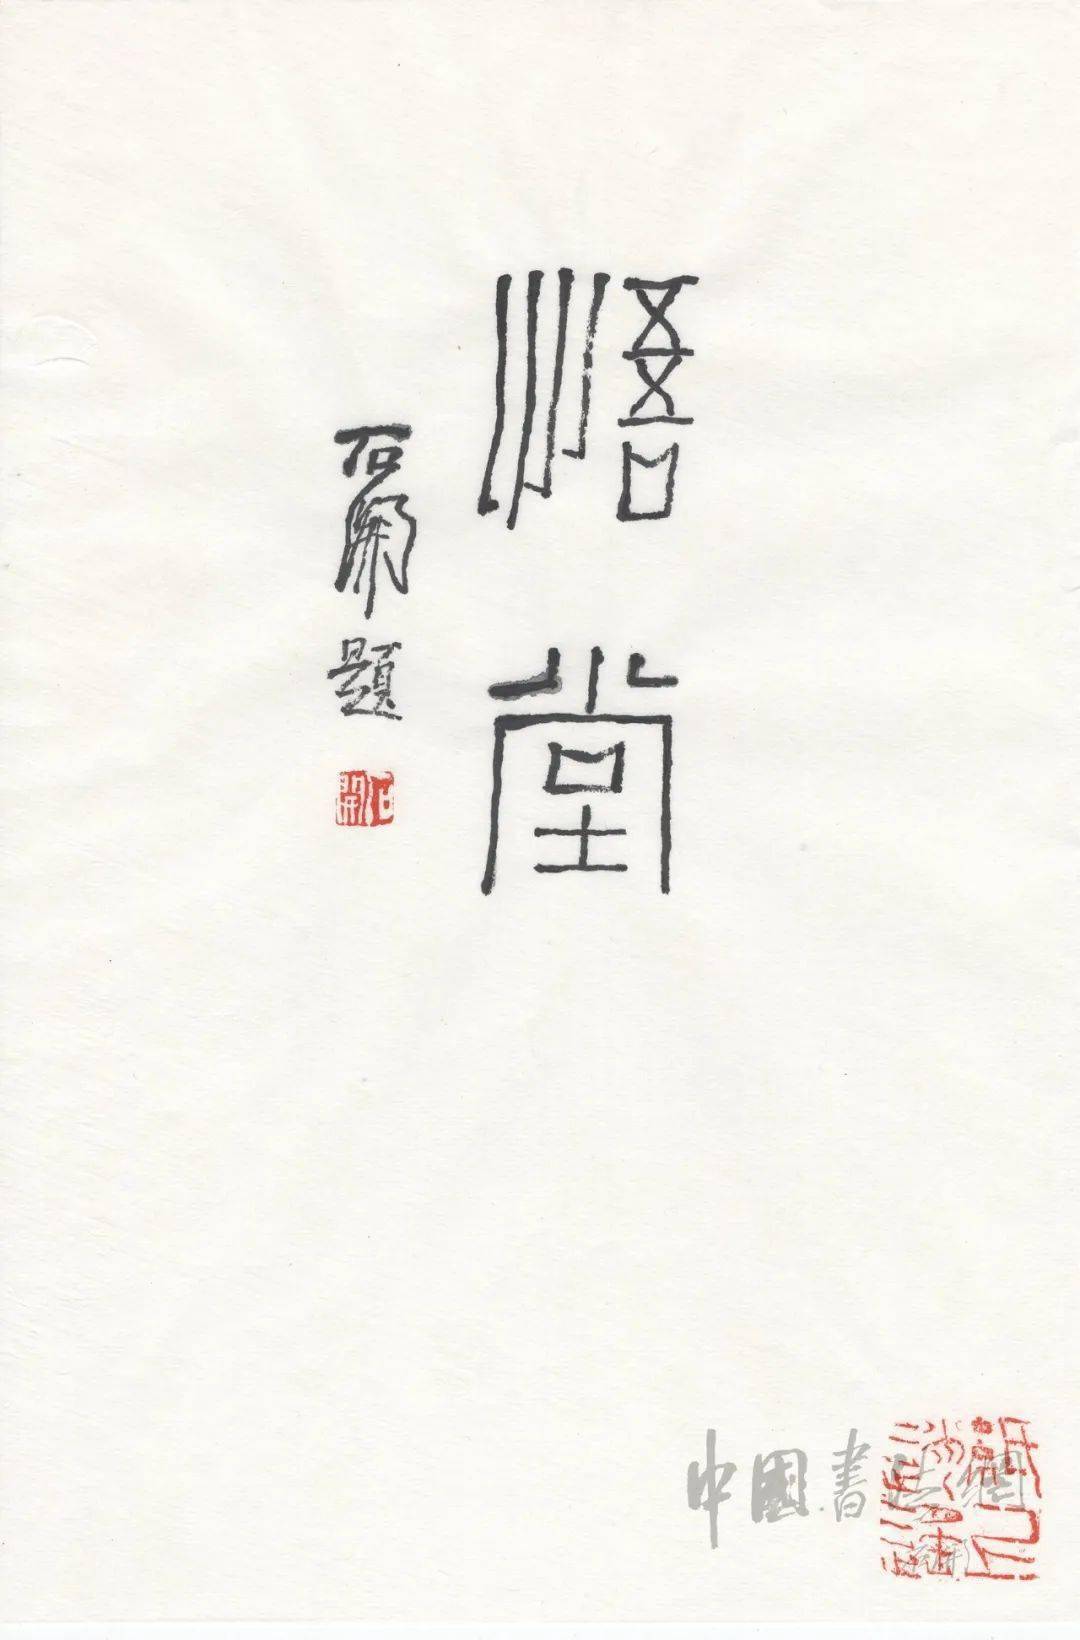 悟堂
石開題
石開
中國書法網